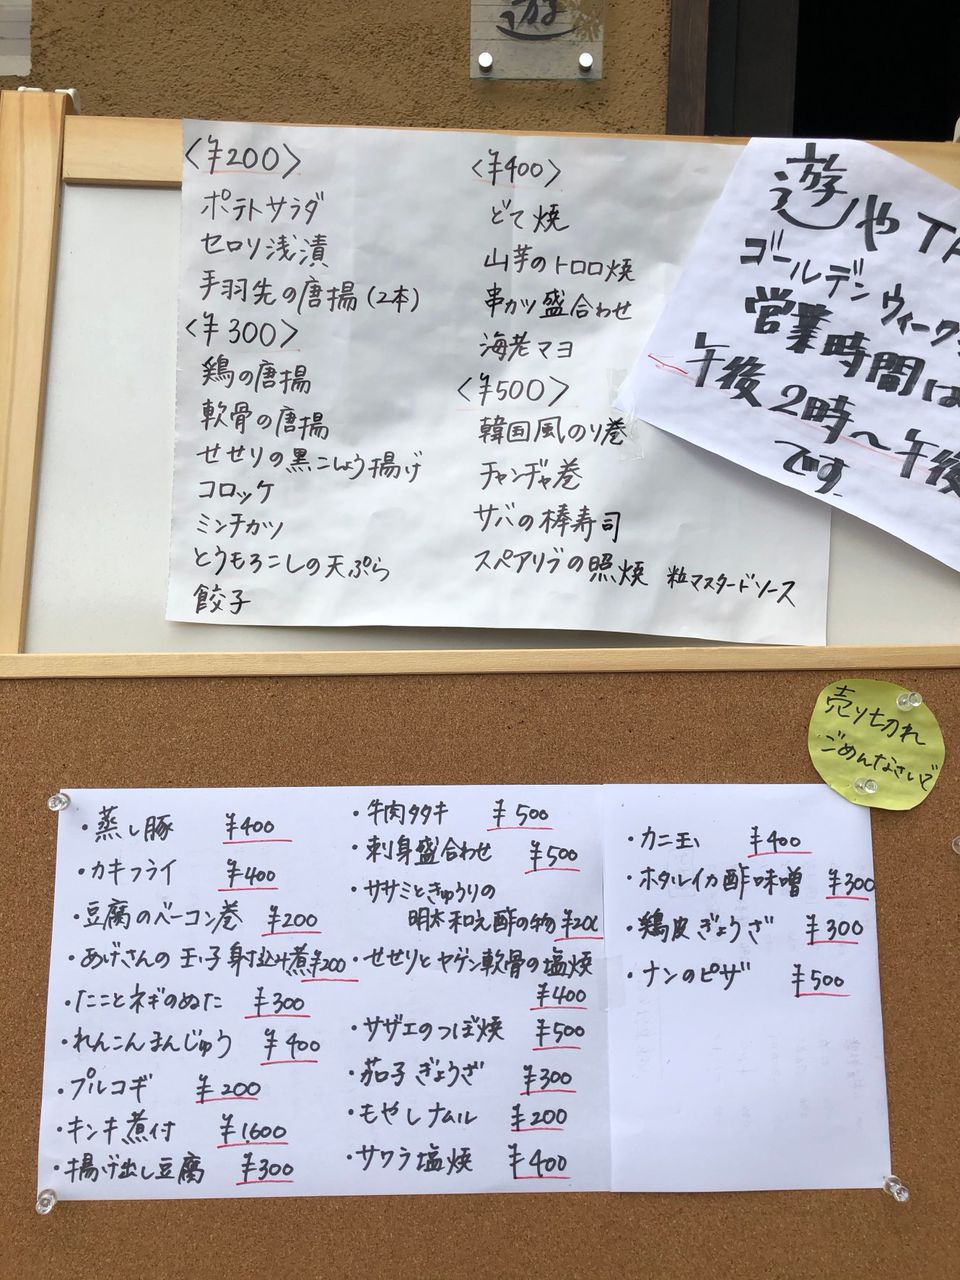 遊
〈¥200〉
ポテトサラダ
セロリ浅漬
手羽先の唐揚(2本)
〈¥300〉
鶏の唐揚
軟骨の唐揚
せせりの黒こしょう揚げ
コロッケ
ミンチカツ
とうもろこしの天ぷら
餃子
〈¥400〉
どて焼
山芋のトロロ焼
串カツ盛合わせ
海老マヨ
〈¥500〉
韓国風のり巻
チャンヂャ巻
サバの棒寿司
スペアリブの照焼 粒マスタードソース
遊や TA
ゴールデンウィーク
営業時間は
午後2時〜午後
です
売り切れ
ごめんなさいで
・蒸し豚 ¥400
・カキフライ ¥400
・豆腐のベーコン巻 ¥200
・あげさんの玉子射込み煮 ¥200
・たことネギのぬた ¥300
・れんこんまんじゅう ¥400
・プルコギ ¥200
・キンキ煮付 ¥1,600
・揚げ出し豆腐 ¥300
・牛肉タタキ ¥500
・刺身盛合わせ ¥500
・ササミときゅうりの
明太和え酢の物 ¥200
・せせりとヤゲン軟骨の塩焼
¥400
・サザエのつぼ焼 ¥500
・茄子ぎょうざ ¥300
・もやしナムル ¥200
・サワラ塩焼 ¥400
・カニ玉 ¥400
・ホタルイカ酢味噌 ¥300
・鶏皮ぎょうざ ¥300
・ナンのピザ ¥500